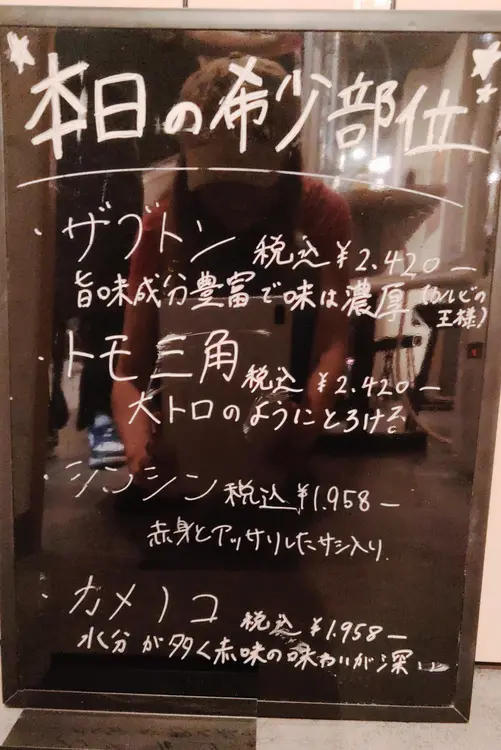 本日の希少部位
・ザブトン 税込¥2.420ー
旨味成分豊富で味は濃厚(カルビの王様)
・トモ三角 税込¥2.420ー
大トロのようにとろける
・シンシン 税込¥1.958ー
赤身とアッサリしたサシ入り.
・カメノコ 税込¥1.958ー
水分が多く赤味の味わいが深い